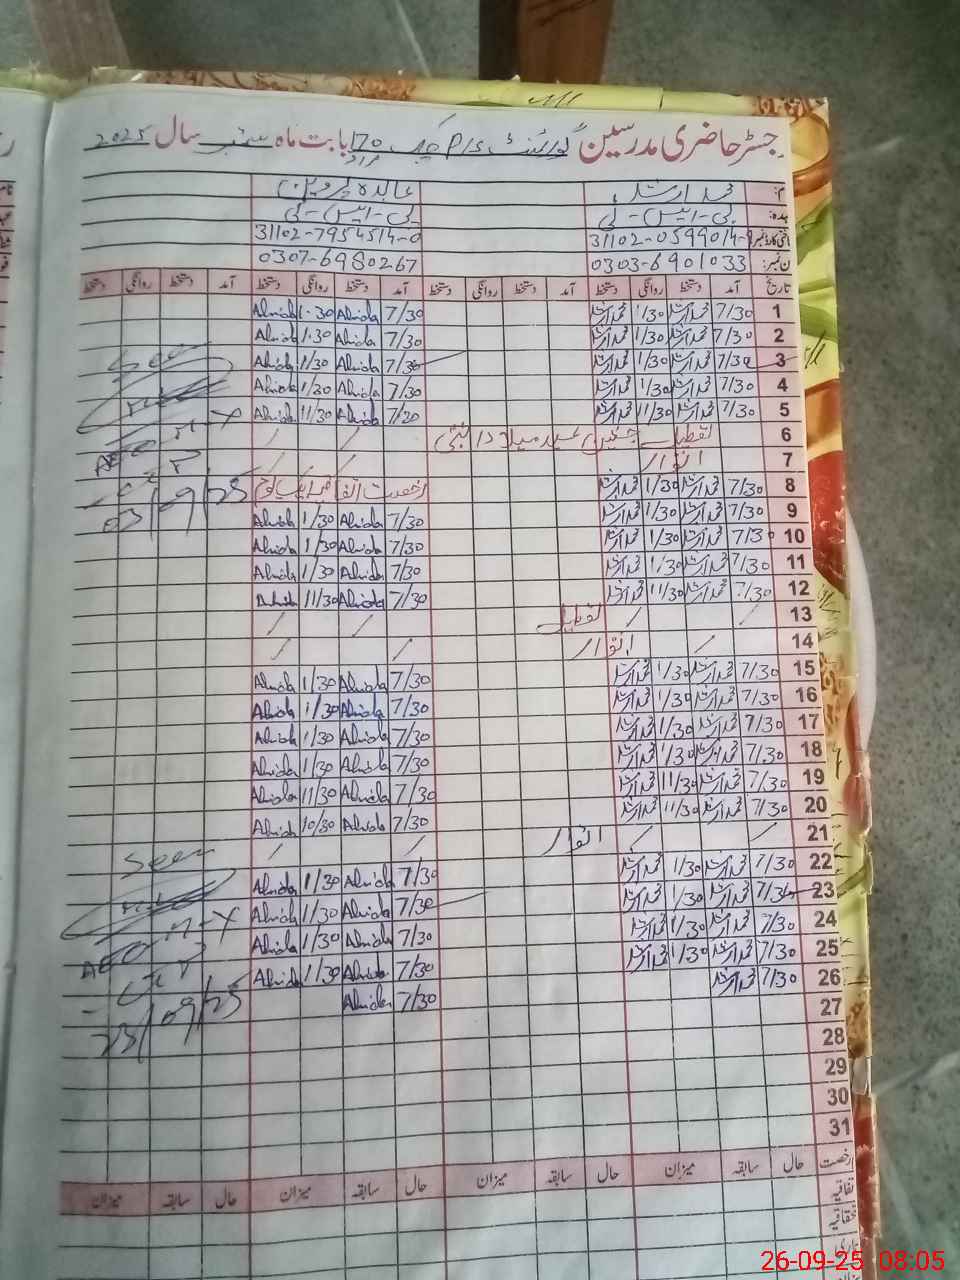 رجسٹر حاضری مدرسین گورنمنٹ P/S چک 170 مراد بابت ماہ ستمبر سال 2025
محمد ارشد عابدہ پروین
پی-ایس-ٹی پی-ایس-ٹی
31102-7954514-0
0303-6901033 0307-6980267
تاریخ آمد دستخط روانگی دستخط آمد دستخط روانگی دستخط آمد دستخط روانگی دستخط آمد دستخط روانگی دستخط
1 7/30 محمد ارشد 1/30 محمد ارشد 7/30 Abida 1.30 Abida
2 7/30 محمد ارشد 1/30 محمد ارشد 7/30 Abida 1.30 Abida
3 7/30 محمد ارشد 1/30 محمد ارشد 7/30 Abida 1/30 Abida Seen
4 7/30 محمد ارشد 1/30 محمد ارشد 7/30 Abida 1/30 Abida
5 7/30 محمد ارشد 11/30 محمد ارشد Abida 11/30 Abida
6 تعطیل جشن عید میلاد النبی AEO
7 اتوار
8 7/30 محمد ارشد 1/30 محمد ارشد رخصت 03/09/25
9 7/30 محمد ارشد 1/30 محمد ارشد 7/30 Abida 1/30 Abida
10 7/30 محمد ارشد 1/30 محمد ارشد 7/30 Abida 1/30 Abida
11 7/30 محمد ارشد 1/30 محمد ارشد 7/30 Abida 1/30 Abida
12 7/30 محمد ارشد 11/30 محمد ارشد 7/30 Abida 11/30 Abida
13 تعطیل
14 اتوار
15 7/30 محمد ارشد 1/30 محمد ارشد 7/30 Abida 1/30 Abida
16 7/30 محمد ارشد 1/30 محمد ارشد 7/30 Abida 1/30 Abida
17 7/30 محمد ارشد 1/30 محمد ارشد 7/30 Abida 1/30 Abida
18 7/30 محمد ارشد 1/30 محمد ارشد 7/30 Abida 1/30 Abida
19 7/30 محمد ارشد 11/30 محمد ارشد 7/30 Abida 11/30 Abida
20 7/30 محمد ارشد 11/30 محمد ارشد 7/30 Abida 10/30 Abida
21 اتوار
22 7/30 محمد ارشد 1/30 محمد ارشد 7/30 Abida 1/30 Abida Seen
23 7/30 محمد ارشد 1/30 محمد ارشد 7/30 Abida 1/30 Abida
24 7/30 محمد ارشد 1/30 محمد ارشد 7/30 Abida 1/30 Abida
25 7/30 محمد ارشد 1/30 محمد ارشد 7/30 Abida 1/30 Abida AEO
26 7/30 محمد ارشد 7/30 Abida
27 23/09/25
28
29
30
31
رخصت حال سابقہ میزان حال سابقہ میزان حال سابقہ میزان حال سابقہ میزان
26-09-25 08:05